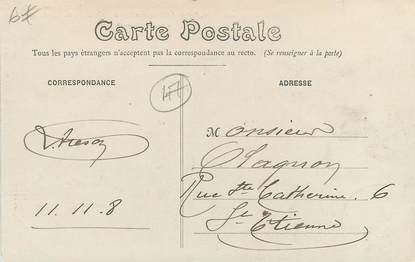 6#
Carte Postale
Tous les pays étrangers n'acceptent pas la correspondance au recto. (Se renseigner à la poste)
CORRESPONDANCE
ADRESSE
47
Monsieur
Olagnon
Rue Ste Catherine 6
St Etienne
11.11.8